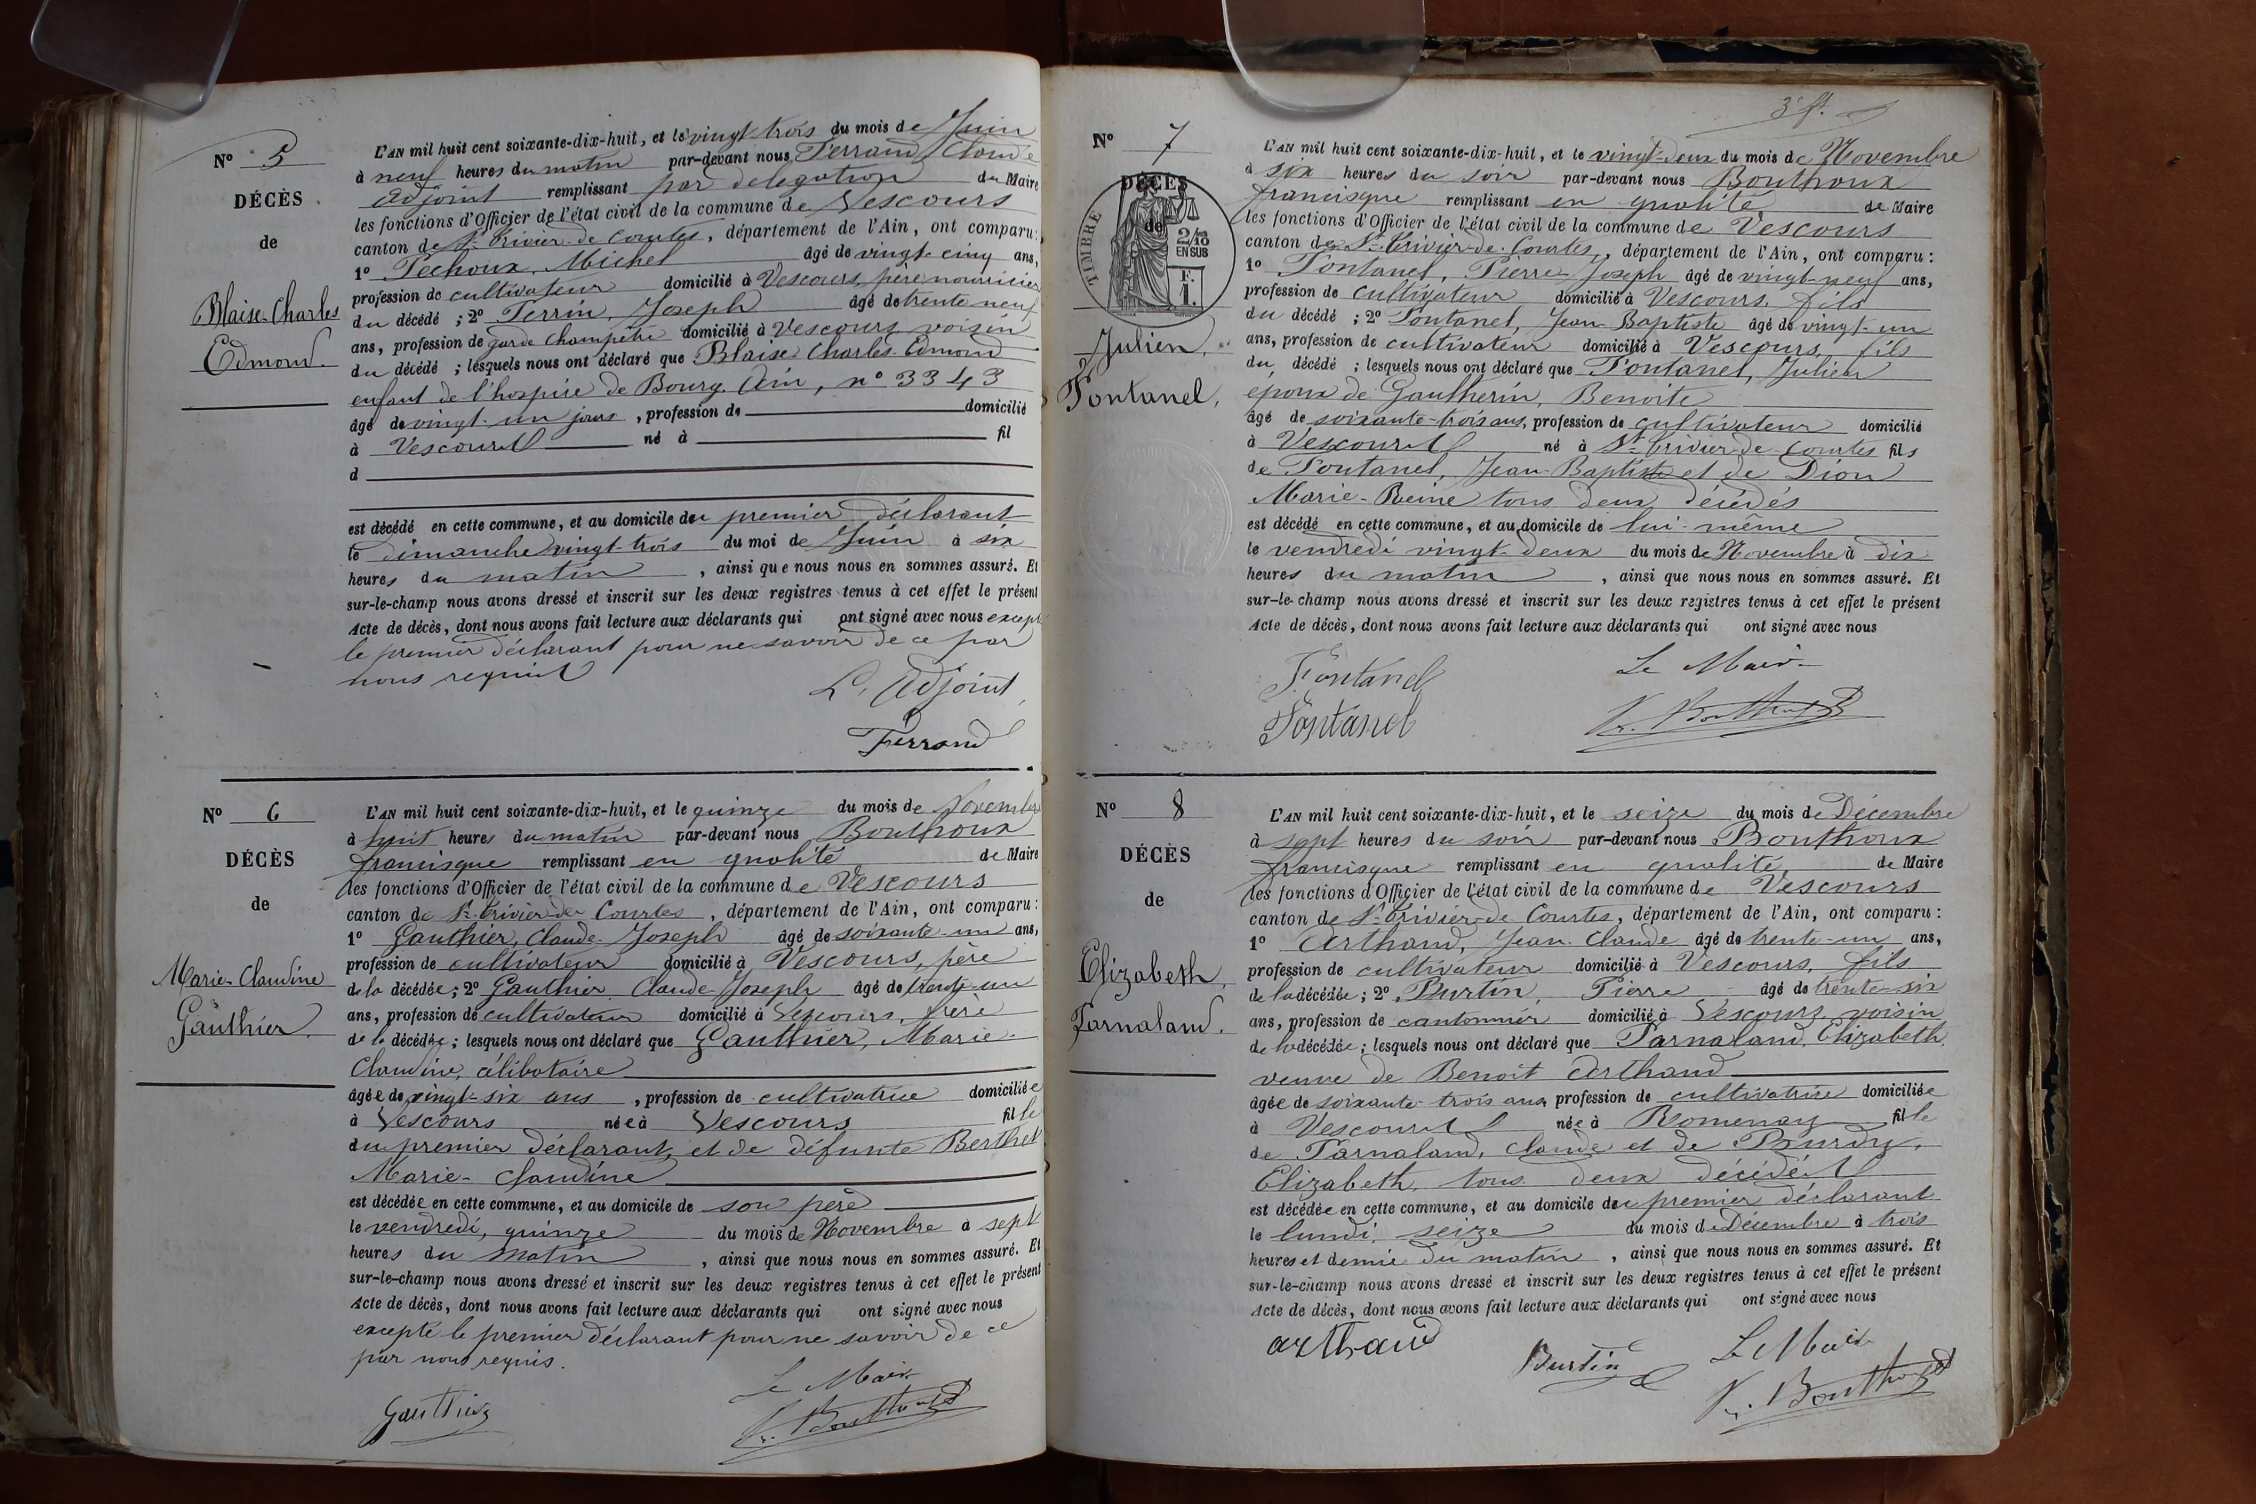 N° 5
DÉCÈS
de
Blaise-Charles
Edmond.
L'AN mil huit cent soixante-dix-huit, et le vingt-trois du mois de Juin
à neuf heures du matin par-devant nous Ferrand, Claude
adjoint remplissant par délégation du Maire
les fonctions d'Officier de l'état civil de la commune de Vescours
canton de St-Trivier-de-Courtes, département de l'Ain, ont comparu:
1° Pechoux, Michel âgé de vingt-cinq ans,
profession de cultivateur domicilié à Vescours, père nourricier
du décédé ; 2° Perrin, Joseph âgé de trente neuf
ans, profession de garde champêtre domicilié à Vescours voisin
du décédé ; lesquels nous ont déclaré que Blaise Charles Edmond
enfant de l'hospice de Bourg. Ain, n° 3343
âgé de vingt-un jours, profession de domicilié
à Vescours né à fil
d
est décédé en cette commune, et au domicile du premier déclarant
le dimanche vingt-trois du moi de Juin à six
heures du matin, ainsi que nous nous en sommes assuré. Et
sur-le-champ nous avons dressé et inscrit sur les deux registres tenus à cet effet le présent
Acte de décès, dont nous avons fait lecture aux déclarants qui ont signé avec nous excepté
le premier déclarant pour ne savoir de ce par
nous requis
L'Adjoint,
Ferrand
N° 6
DÉCÈS
de
Marie-Claudine
Gauthier.
L'AN mil huit cent soixante-dix-huit, et le quinze du mois de Novembre
à huit heures du matin par-devant nous Bouthoux
francisque remplissant en qualité de Maire
les fonctions d'Officier de l'état civil de la commune de Vescours
canton de St-Trivier-de Courtes, département de l'Ain, ont comparu:
1° Gauthier, Claude-Joseph âgé de soixante-un ans,
profession de cultivateur domicilié à Vescours, père
de la décédée; 2° Gauthier Claude-Joseph âgé de trente-un
ans, profession de cultivateur domicilié à Vescours, frère
de la décédée; lesquels nous ont déclaré que Gauthier, Marie-
Claudine, célibataire
âgée de vingt-six ans, profession de cultivatrice domiciliée
à Vescours née à Vescours fille
du premier déclarant, et de défunte Berthet
Marie-Claudine
est décédée en cette commune, et au domicile de son père
le vendredi, quinze du mois de Novembre à sept
heures du matin, ainsi que nous nous en sommes assuré. Et
sur-le-champ nous avons dressé et inscrit sur les deux registres tenus à cet effet le présent
Acte de décès, dont nous avons fait lecture aux déclarants qui ont signé avec nous
excepté le premier déclarant pour ne savoir de ce
par nous requis.
Le Maire
Gauthier
Fr. Bouthoux
3e ft.
N° 7
DÉCÈS
de
TIMBRE
2/10
EN SUS
F.
1.
Julien,
Fontanel,
L'AN mil huit cent soixante-dix-huit, et le vingt-deux du mois de Novembre
à six heures du soir par-devant nous Bouthoux
francisque remplissant en qualité de Maire
les fonctions d'Officier de l'état civil de la commune de Vescours
canton de St-Trivier-de-Courtes, département de l'Ain, ont comparu:
1° Fontanel, Pierre-Joseph âgé de vingt-neuf ans,
profession de cultivateur domicilié à Vescours, fils
du décédé ; 2° Fontanel, Jean-Baptiste âgé de vingt-un
ans, profession de cultivateur domicilié à Vescours, fils
du décédé ; lesquels nous ont déclaré que Fontanel, Julien
époux de Gauthérin, Benoite
âgé de soixante-trois ans, profession de cultivateur domicilié
à Vescours né à St-Trivier-de-Courtes fils
de Fontanel, Jean-Baptiste et de Dion
Marie-Reine tous deux décédés
est décédé en cette commune, et au domicile de lui-même
le vendredi vingt-deux du mois de Novembre à dix
heures du matin, ainsi que nous nous en sommes assuré. Et
sur-le-champ nous avons dressé et inscrit sur les deux registres tenus à cet effet le présent
Acte de décès, dont nous avons fait lecture aux déclarants qui ont signé avec nous
Fontanel
Le Maire
Fontanel
Fr. Bouthoux
N° 8
DÉCÈS
de
Elizabeth,
Parnaland.
L'AN mil huit cent soixante-dix-huit, et le seize du mois de Décembre
à sept heures du soir par-devant nous Bouthoux
francisque remplissant en qualité de Maire
les fonctions d'Officier de l'état civil de la commune de Vescours
canton de St-Trivier-de Courtes, département de l'Ain, ont comparu:
1° Arthaud, Jean-Claude âgé de trente-un ans,
profession de cultivateur domicilié à Vescours, fils
de la décédée; 2° Burtin, Pierre âgé de trente-six
ans, profession de cantonnier domicilié à Vescours voisin
de la décédée; lesquels nous ont déclaré que Parnaland, Elizabeth,
veuve de Benoit Arthaud
âgée de soixante-trois ans, profession de cultivatrice domiciliée
à Vescours née à Romenay fille
de Parnaland, Claude et de Bourdy,
Elizabeth, tous deux décédés
est décédée en cette commune, et au domicile du premier déclarant
le lundi, seize du mois de Décembre à trois
heures et demie du matin, ainsi que nous nous en sommes assuré. Et
sur-le-champ nous avons dressé et inscrit sur les deux registres tenus à cet effet le présent
Acte de décès, dont nous avons fait lecture aux déclarants qui ont signé avec nous
arthaud
Burtin
Le Maire
Fr. Bouthoux